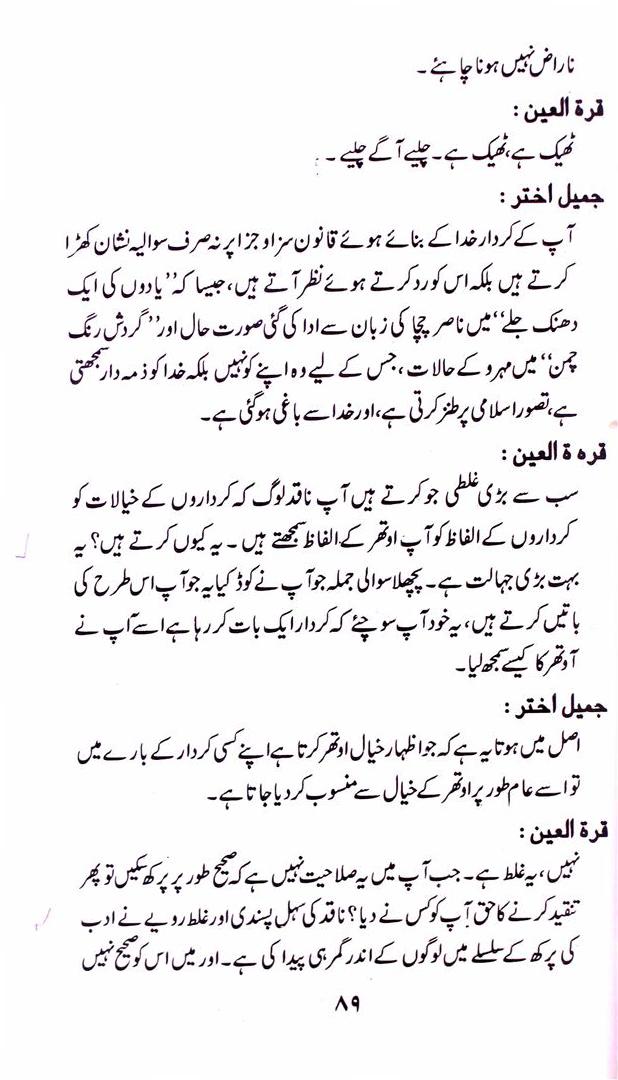 ناراض نہیں ہونا چاہئے ۔
قرۃ العین :
ٹھیک ہے، ٹھیک ہے ۔ چلیے آگے چلیے ۔
جمیل اختر :
آپ کے کردار خدا کے بنائے ہوئے قانون سزا و جزا پر نہ صرف سوالیہ نشان کھڑا
کرتے ہیں بلکہ اس کو رد کرتے ہوئے نظر آتے ہیں، جیسا کہ ’’یادوں کی ایک
دھنک جلے‘‘ میں ناصر چچا کی زبان سے ادا کی گئی صورت حال اور ’’گردش رنگ
چمن‘‘ میں مہرو کے حالات ، جس کے لیے وہ اپنے کو نہیں بلکہ خدا کو ذمہ دار سمجھتی
ہے، تصور اسلامی پر طنز کرتی ہے، اور خدا سے باغی ہو گئی ہے۔
قرہ ۃ العین :
سب سے بڑی غلطی جو کرتے ہیں آپ ناقد لوگ کہ کرداروں کے خیالات کو
کرداروں کے الفاظ کو آپ اوتھر کے الفاظ سمجھتے ہیں ۔ یہ کیوں کرتے ہیں؟ یہ
بہت بڑی جہالت ہے۔ پچھلا سوالی جملہ جو آپ نے کوڈ کیا یہ جو آپ اس طرح کی
باتیں کرتے ہیں، یہ خود آپ سوچئے کہ کردار ایک بات کر رہا ہے اسے آپ نے
آوتھر کا کیسے سمجھ لیا۔
جمیل اختر :
اصل میں ہوتا یہ ہے کہ جو اظہار خیال اوتھر کرتا ہے اپنے کسی کردار کے بارے میں
تو اسے عام طور پر اوتھر کے خیال سے منسوب کر دیا جاتا ہے۔
قرۃ العین :
نہیں، یہ غلط ہے۔ جب آپ میں یہ صلاحیت نہیں ہے کہ صحیح طور پر پرکھ سکیں تو پھر
تنقید کرنے کا حق آپ کو کس نے دیا؟ ناقد کی سہل پسندی اور غلط رویے نے ادب
کی پرکھ کے سلسلے میں لوگوں کے اندر گمرہی پیدا کی ہے۔ اور میں اس کو صحیح نہیں
۸۹